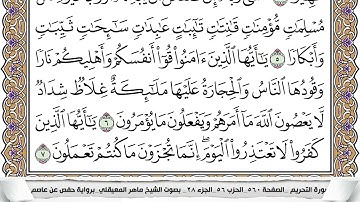 مُسْلِمَٰتٍ مُّؤْمِنَٰتٍ قَٰنِتَٰتٍ تَٰٓئِبَٰتٍ عَٰبِدَٰتٍ سَٰٓئِحَٰتٍ ثَيِّبَٰتٍ
وَأَبْكَارًا ٥ يَٰٓأَيُّهَا ٱلَّذِينَ ءَامَنُوا۟ قُوٓا۟ أَنفُسَكُمْ وَأَهْلِيكُمْ نَارًا
وَقُودُهَا ٱلنَّاسُ وَٱلْحِجَارَةُ عَلَيْهَا مَلَٰٓئِكَةٌ غِلَاظٌ شِدَادٌ
لَّا يَعْصُونَ ٱللَّهَ مَآ أَمَرَهُمْ وَيَفْعَلُونَ مَا يُؤْمَرُونَ ٦ يَٰٓأَيُّهَا ٱلَّذِينَ
كَفَرُوا۟ لَا تَعْتَذِرُوا۟ ٱلْيَوْمَ إِنَّمَا تُجْزَوْنَ مَا كُنتُمْ تَعْمَلُونَ ٧
سورة التحريم . الصفحة ٥٦٠ . الحزب ٥٦ . الجزء ٢٨ . بصوت الشيخ ماهر المعيقلي برواية حفص عن عاصم